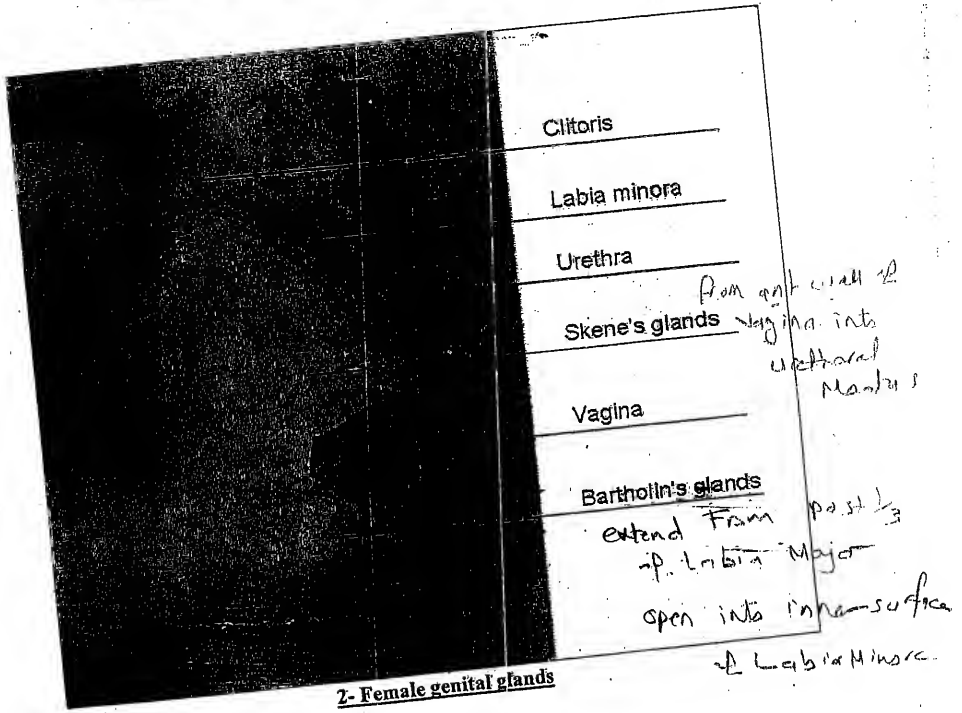 Clitoris
Labia minora
Urethra
from ant wall of
Skene's glands
Vagina into
urethral
Vagina
Bartholin's glands
extend From post 1/3
of Labia Major
open into inner surface
of Labia Minora.
2- Female genital glands